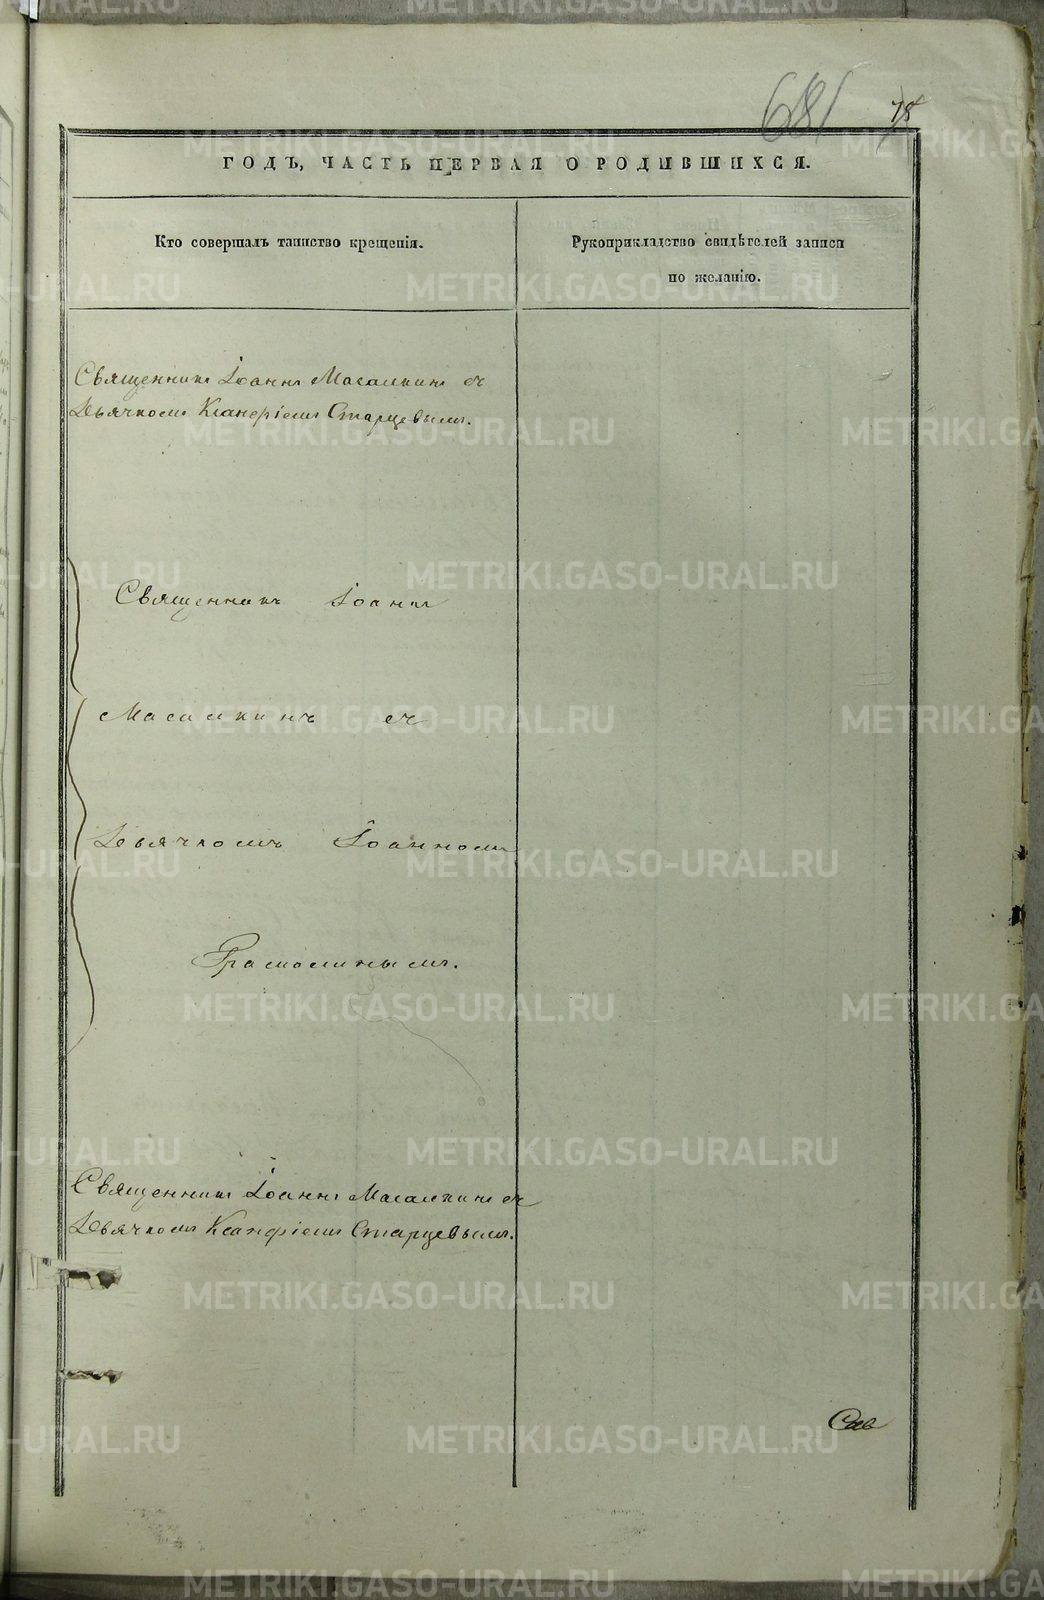 681 78
ГОДЪ, ЧАСТЬ ПЕРВАЯ О РОДИВШИХСЯ.
Кто совершалъ таинство крещенія.
Рукоприкладство свидѣтелей записи
по желанію.
Священникъ Іоаннъ Масалкинъ съ
Дьячкомъ Ксанфіемъ Старцевымъ.
Священникъ Іоаннъ
Масалкинъ съ
Дьячкомъ Іоанномъ
Грамолинымъ.
Священникъ Іоаннъ Масалкинъ съ
Дьячкомъ Ксанфіемъ Старцевымъ.
METRIKI.GASO-URAL.RU